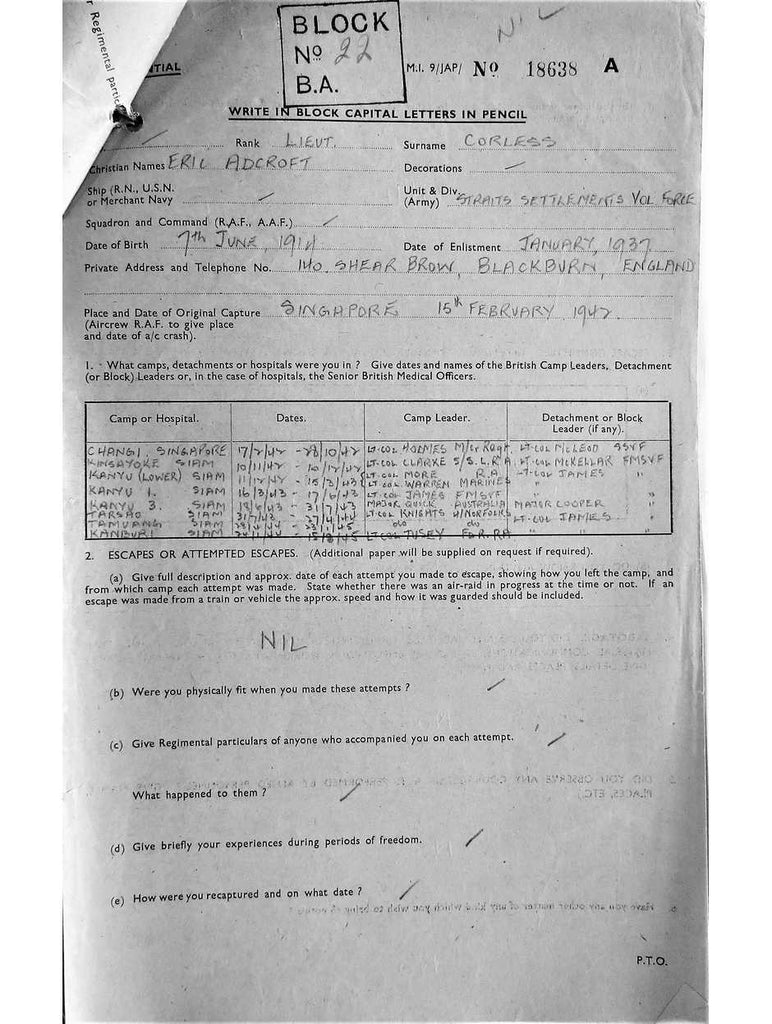 r Regimental partic
NTIAL
BLOCK
Nº 22
B.A.
NIL
M.I. 9/JAP/ Nº 18638 A
WRITE IN BLOCK CAPITAL LETTERS IN PENCIL
Rank LIEUT. Surname CORLESS
Christian Names ERIC ADCROFT Decorations
Ship (R.N., U.S.N. or Merchant Navy
Unit & Div. (Army) STRAITS SETTLEMENTS VOL FORCE
Squadron and Command (R.A.F., A.A.F.)
Date of Birth 7th JUNE, 1914 Date of Enlistment JANUARY, 1937
Private Address and Telephone No. 140, SHEAR BROW, BLACKBURN, ENGLAND
Place and Date of Original Capture SINGAPORE 15th FEBRUARY, 1942
(Aircrew R.A.F. to give place
and date of a/c crash).
1. What camps, detachments or hospitals were you in ? Give dates and names of the British Camp Leaders, Detachment
(or Block) Leaders or, in the case of hospitals, the Senior British Medical Officers.
Camp or Hospital. Dates. Camp Leader. Detachment or Block
Leader (if any).
CHANGI, SINGAPORE 17/2/42 - 28/10/42 LT-COL HOLMES LT-COL McLEOD SSVF
KINSAYOKE SIAM 10/11/42 - LT-COL CLARKE LT-COL McKELLAR FMSVF
KANYU (LOWER) SIAM 11/12/42 - 15/3/43 LT-COL MORE R.A. LT-COL JAMES "
LT-COL WARREN MARINES
KANYU 1. SIAM 16/3/43 - 17/6/43 LT-COL JAMES FMSVF
KANYU 3. SIAM 18/6/43 - 31/7/43 MAJOR QUICK AUSTRALIA MAJOR COOPER "
TARSAO SIAM 31/7/43 - 27/4/44 LT-COL KNIGHTS 4/NORFOLKS LT-COL JAMES "
TAMUANG SIAM do do
KANBURI SIAM 15/8/45 LT-COL TUSEY " "
2. ESCAPES OR ATTEMPTED ESCAPES. (Additional paper will be supplied on request if required).
(a) Give full description and approx. date of each attempt you made to escape, showing how you left the camp, and
from which camp each attempt was made. State whether there was an air-raid in progress at the time or not. If an
escape was made from a train or vehicle the approx. speed and how it was guarded should be included.
NIL
(b) Were you physically fit when you made these attempts ?
(c) Give Regimental particulars of anyone who accompanied you on each attempt.
What happened to them ?
(d) Give briefly your experiences during periods of freedom.
(e) How were you recaptured and on what date ?
P.T.O.